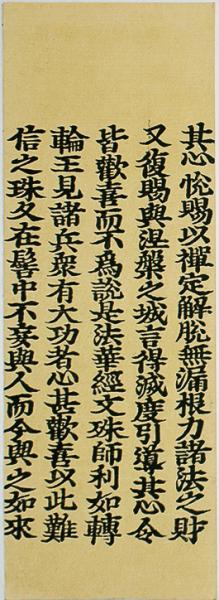 其心悅賜以禪定解脫無漏根力諸法之財
又復賜與涅槃之城言得滅度引導其心令
皆歡喜而不為說是法華經文殊師利如轉
輪王見諸兵眾有大功者心甚歡喜以此難
信之珠久在髻中不妄與人而今與之如來